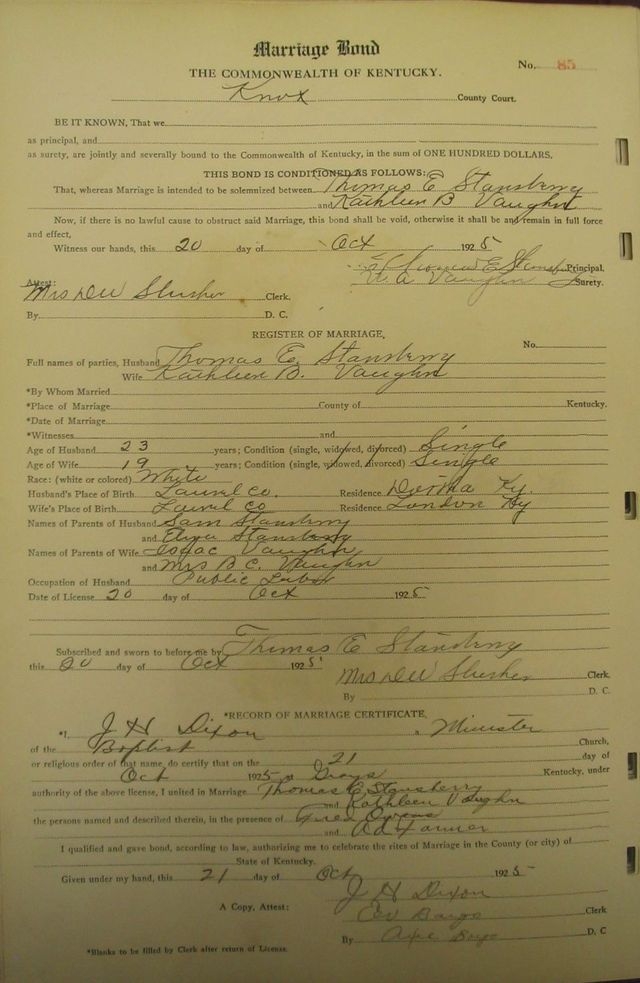 Marriage Bond
THE COMMONWEALTH OF KENTUCKY.
No. 85
Knox County Court.
BE IT KNOWN, That we
as principal, and
as surety, are jointly and severally bound to the Commonwealth of Kentucky, in the sum of ONE HUNDRED DOLLARS,
THIS BOND IS CONDITIONED AS FOLLOWS:
That, whereas Marriage is intended to be solemnized between Thomas E Stansberry
and Kathleen B Vaughn
Now, if there is no lawful cause to obstruct said Marriage, this bond shall be void, otherwise it shall be and remain in full force
and effect,
Witness our hands, this 20 day of Oct 1925
Thomas E Principal,
Attest: Vaughn Surety.
Mrs Slusher Clerk.
By D. C.
REGISTER OF MARRIAGE,
No.
Full names of parties, Husband Thomas E. Stansberry
Wife Kathleen B. Vaughn
*By Whom Married
*Place of Marriage County of Kentucky.
*Date of Marriage
*Witnesses and
Age of Husband 23 years; Condition (single, widowed, divorced) Single
Age of Wife 19 years; Condition (single, widowed, divorced) Single
Race: (white or colored) White
Husband's Place of Birth Laurel Co. Residence Ky.
Wife's Place of Birth Laurel Co Residence London Ky
Names of Parents of Husband Sam Stansberry
and Stansberry
Names of Parents of Wife Isaac Vaughn
and Mrs B. C. Vaughn
Occupation of Husband Public Labor
Date of License 20 day of Oct 1925
Subscribed and sworn to before me by Thomas E Stansberry
this 20 day of Oct 1925
Mrs Slusher Clerk.
By D. C.
*RECORD OF MARRIAGE CERTIFICATE,
*I, J H Dixon a Minister
of the Baptist Church,
or religious order of that name, do certify that on the 21 day of
Oct 1925 a Grays Kentucky, under
authority of the above license, I united in Marriage Thomas E Stansberry
and Kathleen Vaughn
the persons named and described therein, in the presence of Owens
and Farmer
I qualified and gave bond, according to law, authorizing me to celebrate the rites of Marriage in the County (or city) of
State of Kentucky.
Given under my hand, this 21 day of Oct 1925
J H Dixon
A Copy, Attest: Clerk
By D. C
*Blanks to be filled by Clerk after return of License.